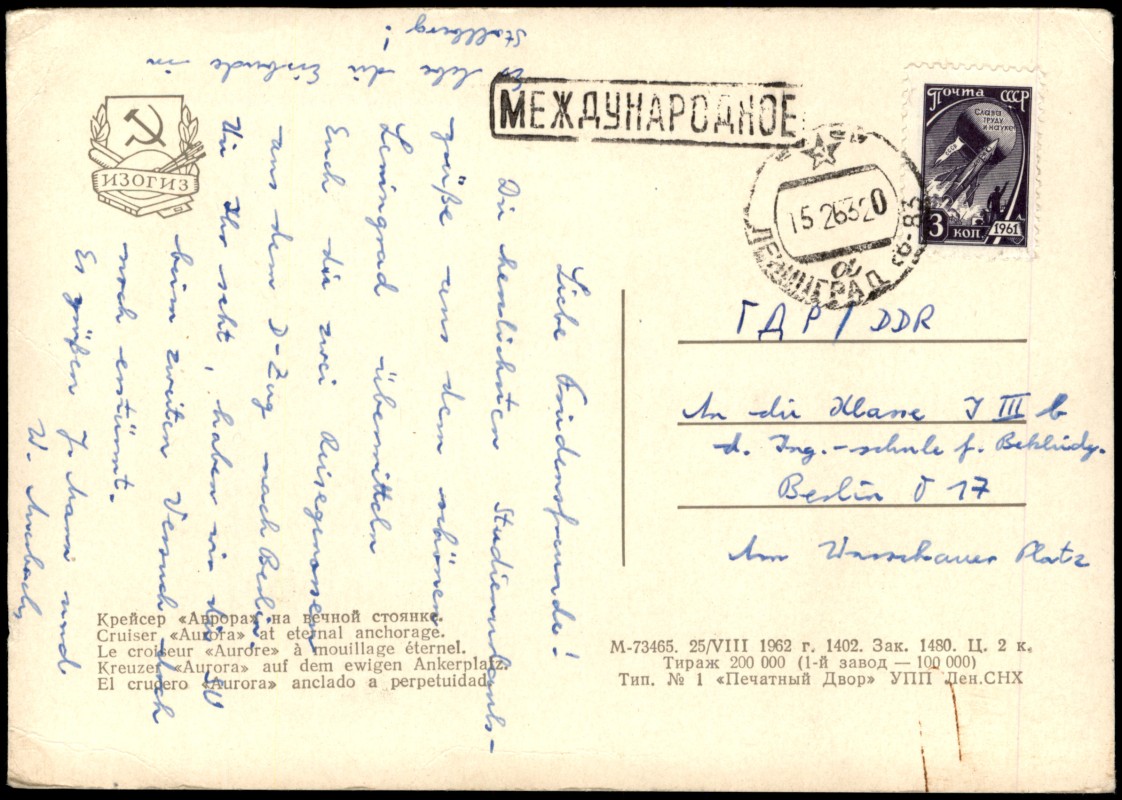 МЕЖДУНАРОДНОЕ
ПОЧТА СССР
Слава
труду
и науке!
3 коп. 1961
15 2 63 20
ЛЕНИНГРАД
ИЗОГИЗ
Liebe Friedensfreunde!
Die herzlichsten Studienurlaubs-
grüße aus dem schönen
Leningrad übermitteln
Euch die zwei Reisegenossen
aus dem D-Zug nach Berlin.
Wie Ihr seht, haben wir die SU
beim zweiten Versuch doch
noch erstürmt.
Es grüßen J. Mann und
W.
Es lebe die Eisbude in
Stollberg!
ГДР / DDR
An die Klasse J III b
d. Ing.-schule f. Bekleidg.
Berlin O 17
Am Warschauer Platz
Крейсер «Аврора» на вечной стоянке.
Cruiser «Aurora» at eternal anchorage.
Le croiseur «Aurore» à mouillage éternel.
Kreuzer «Aurora» auf dem ewigen Ankerplatz.
El crucero «Aurora» anclado a perpetuidad.
М-73465. 25/VIII 1962 г. 1402. Зак. 1480. Ц. 2 к.
Тираж 200 000 (1-й завод — 100 000)
Тип. № 1 «Печатный Двор» УПП Лен.СНХ